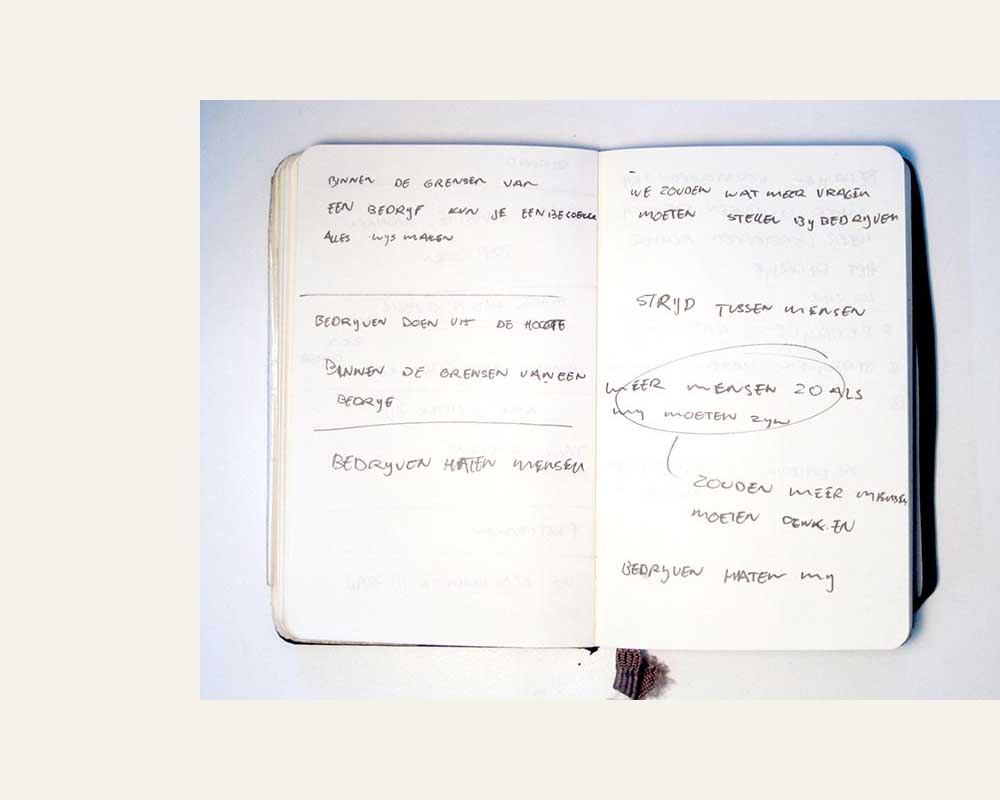 BINNEN DE GRENSEN VAN
EEN BEDRYF KUN JE EEN
ALLES WYS MAKEN
BEDRYVEN DOEN UIT DE HOOGTE
BINNEN DE GRENSEN VAN EEN
BEDRYF
BEDRYVEN HATEN MENSEN
WE ZOUDEN WAT MEER VRAGEN
MOETEN STELLEN By BEDRYVEN
STRYD TUSSEN MENSEN
MEER MENSEN ZOALS
MY MOETEN ZYN
ZOUDEN MEER MENSEN
MOETEN DENKEN
BEDRYVEN HATEN My